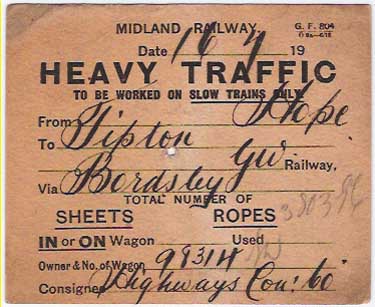 MIDLAND RAILWAY. G. F. 804
Date 16 4 19
HEAVY TRAFFIC
TO BE WORKED ON SLOW TRAINS ONLY.
From Hope
To Tipton
GW Railway,
Via Bordsley
TOTAL NUMBER OF
SHEETS ROPES
IN or ON Wagon Used
Owner & No. of Wagon 98314
Consignee Highways Con: 60